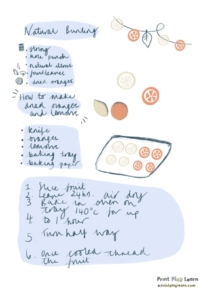 Natural Bunting
string
hole punch
natural
How to make
dried oranges
and lemons
knife
oranges
lemons
baking tray
baking paper
1 Slice fruit
2 Leave 24hrs. air dry
3 Bake in oven on
tray 140°c for up
4 to 1 hour
5 Turn half way
6. once cooled thread
the fruit
Print Play Learn